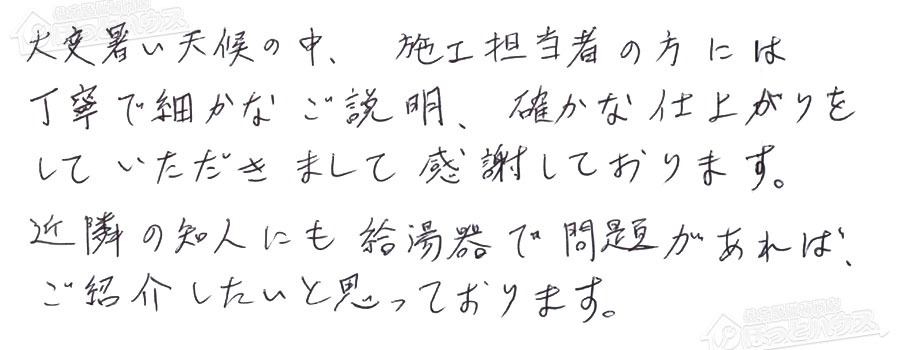 大変暑い天候の中、施工担当者の方には
丁寧で細かなご説明、確かな仕上がりを
していただきまして感謝しております。
近隣の知人にも給湯器で問題があれば、
ご紹介したいと思っております。
ほっとハウス